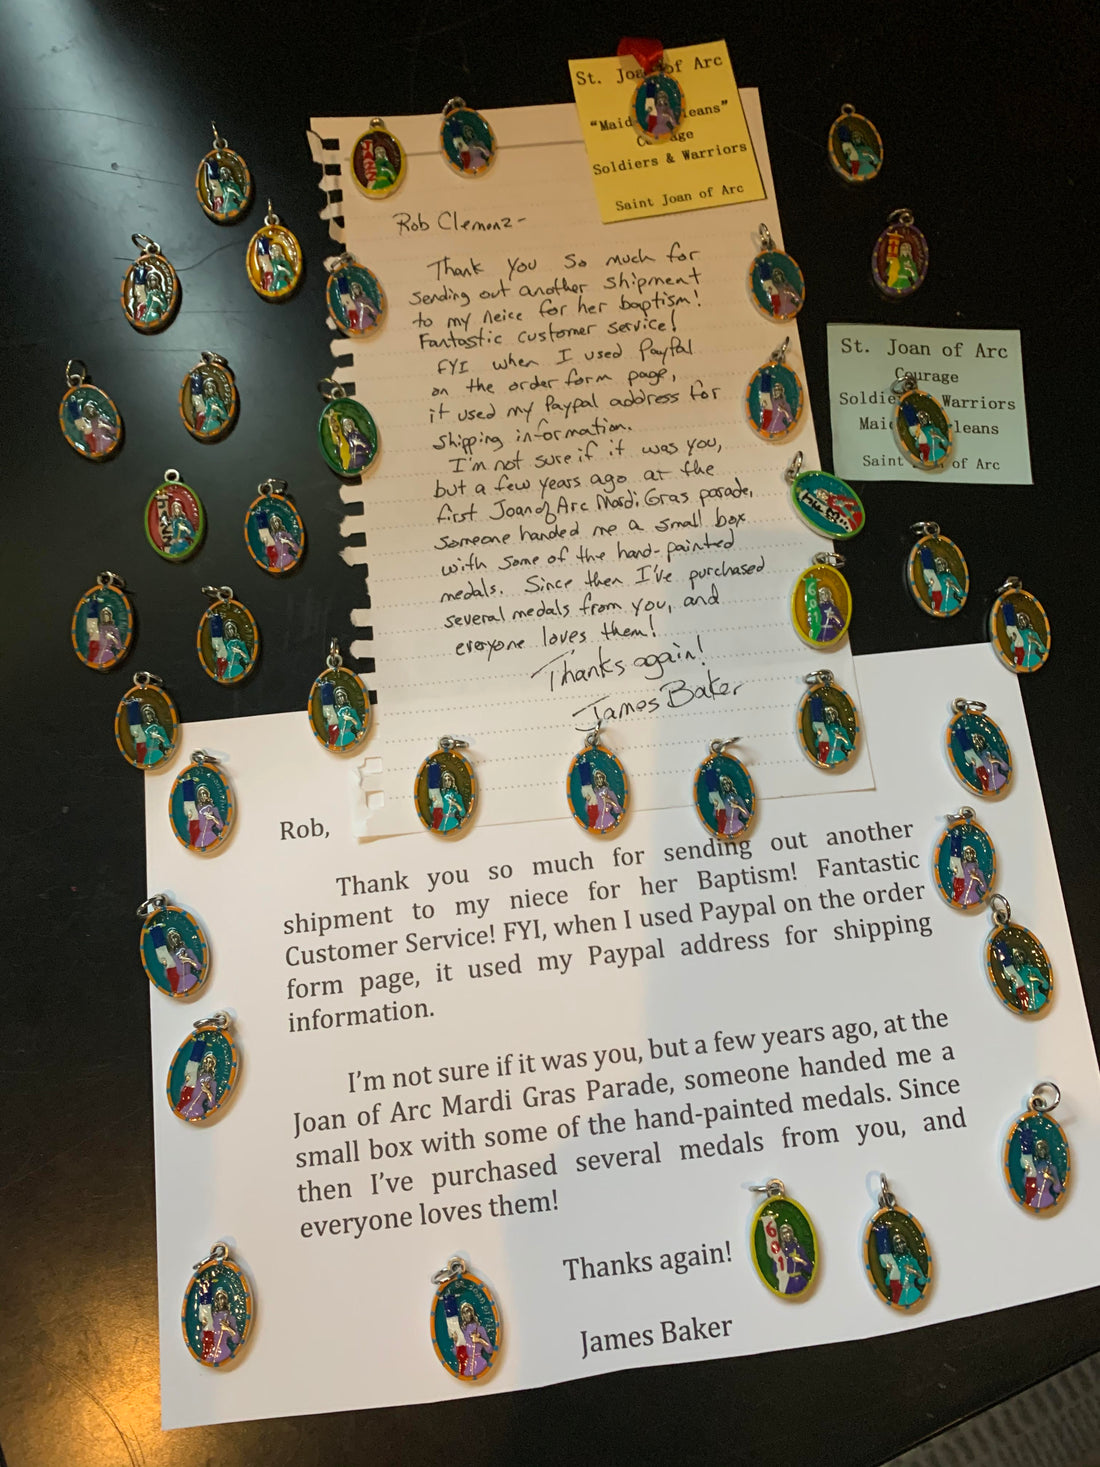 St. Joan of Arc
"Maid leans"
Courage
Soldiers & Warriors
Saint Joan of Arc
Rob Clemonz-
Thank you so much for
sending out another shipment
to my neice for her baptism!
Fantastic customer service!
FYI when I used PayPal
on the order form page,
it used my Paypal address for
shipping information.
I'm not sure if it was you,
but a few years ago at the
first Joan of Arc Mardi Gras parade,
someone handed me a small box
with some of the hand-painted
medals. Since then I've purchased
several medals from you, and
everyone loves them!
Thanks again!
James Baker
St. Joan of Arc
Courage
Soldie Warriors
Mai leans
Saint of Arc
Rob,
Thank you so much for sending out another
shipment to my niece for her Baptism! Fantastic
Customer Service! FYI, when I used Paypal on the order
form page, it used my Paypal address for shipping
information.
I'm not sure if it was you, but a few years ago, at the
Joan of Arc Mardi Gras Parade, someone handed me a
small box with some of the hand-painted medals. Since
then I've purchased several medals from you, and
everyone loves them!
Thanks again!
James Baker